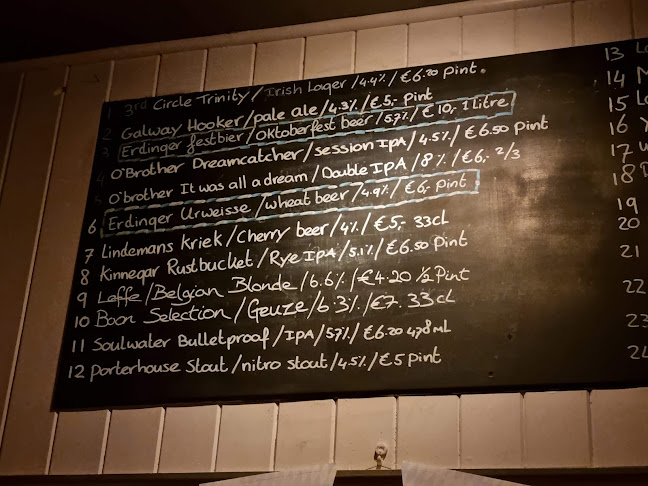 1 3rd Circle Trinity / Irish Lager / 4.4% / €6.20 Pint.
2 Galway Hooker / pale ale / 4.3% / €5,- Pint
3 Erdinger festbier / Oktoberfest beer / 5.7% / €10,- 1 litre
4 O'Brother Dreamcatcher / session IPA / 4.5% / €6.50 pint
5 O'brother It was all a dream / Double IPA / 8% / €6,- 2/3
6 Erdinger Urweisse / wheat beer / 4.9% / €6,- Pint
7 Lindemans Kriek / Cherry beer / 4% / €5,- 33cl
8 Kinnegar Rustbucket / Rye IPA / 5.1% / €6.50 Pint
9 Leffe / Belgian Blonde / 6.6% / €4.20 1/2 Pint
10 Boon Selection / Geuze / 6.3% / €7. 33cl
11 Soulwater Bulletproof / IPA / 5.7% / €6.20 478ML
12 Porterhouse Stout / nitro stout / 4.5% / €5 Pint
13
14
15
16
17
18
19
20
21
22
23
24